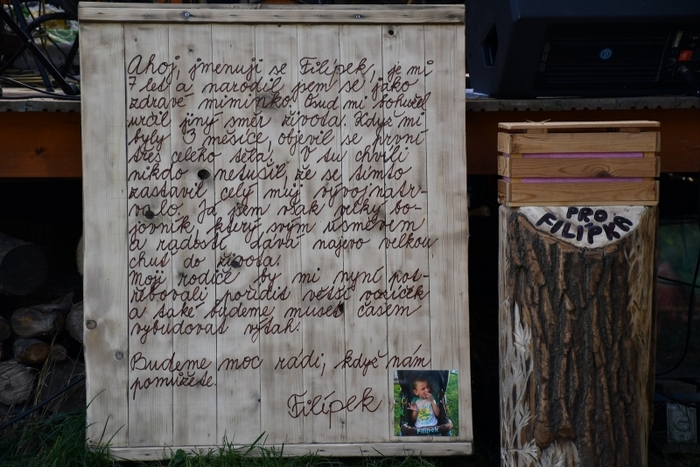 Ahoj, jmenuji se Filípek, je mi
7 let a narodil jsem se jako
zdravé miminko. Osud mi bohužel
určil jiný směr života. Když mi
byly 3 měsíce, objevil se první
třes celého těla. V tu chvíli
nikdo netušil, že se tímto
zastavil celý můj vývoj natr-
valo. Já jsem však velký bo-
jovník, který svým úsměvem
a radostí dává najevo velkou
chuť do života.
Moji rodiče by mi nyní pot-
řebovali pořídit větší vozíček
a také budeme muset časem
vybudovat výtah.
Budeme moc rádi, když nám
pomůžete.
Filípek
Filípek
PRO
FILÍPKA